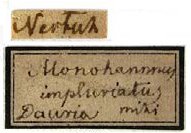 Nertsch
Monohammus
impluviatus
Dauria mihi